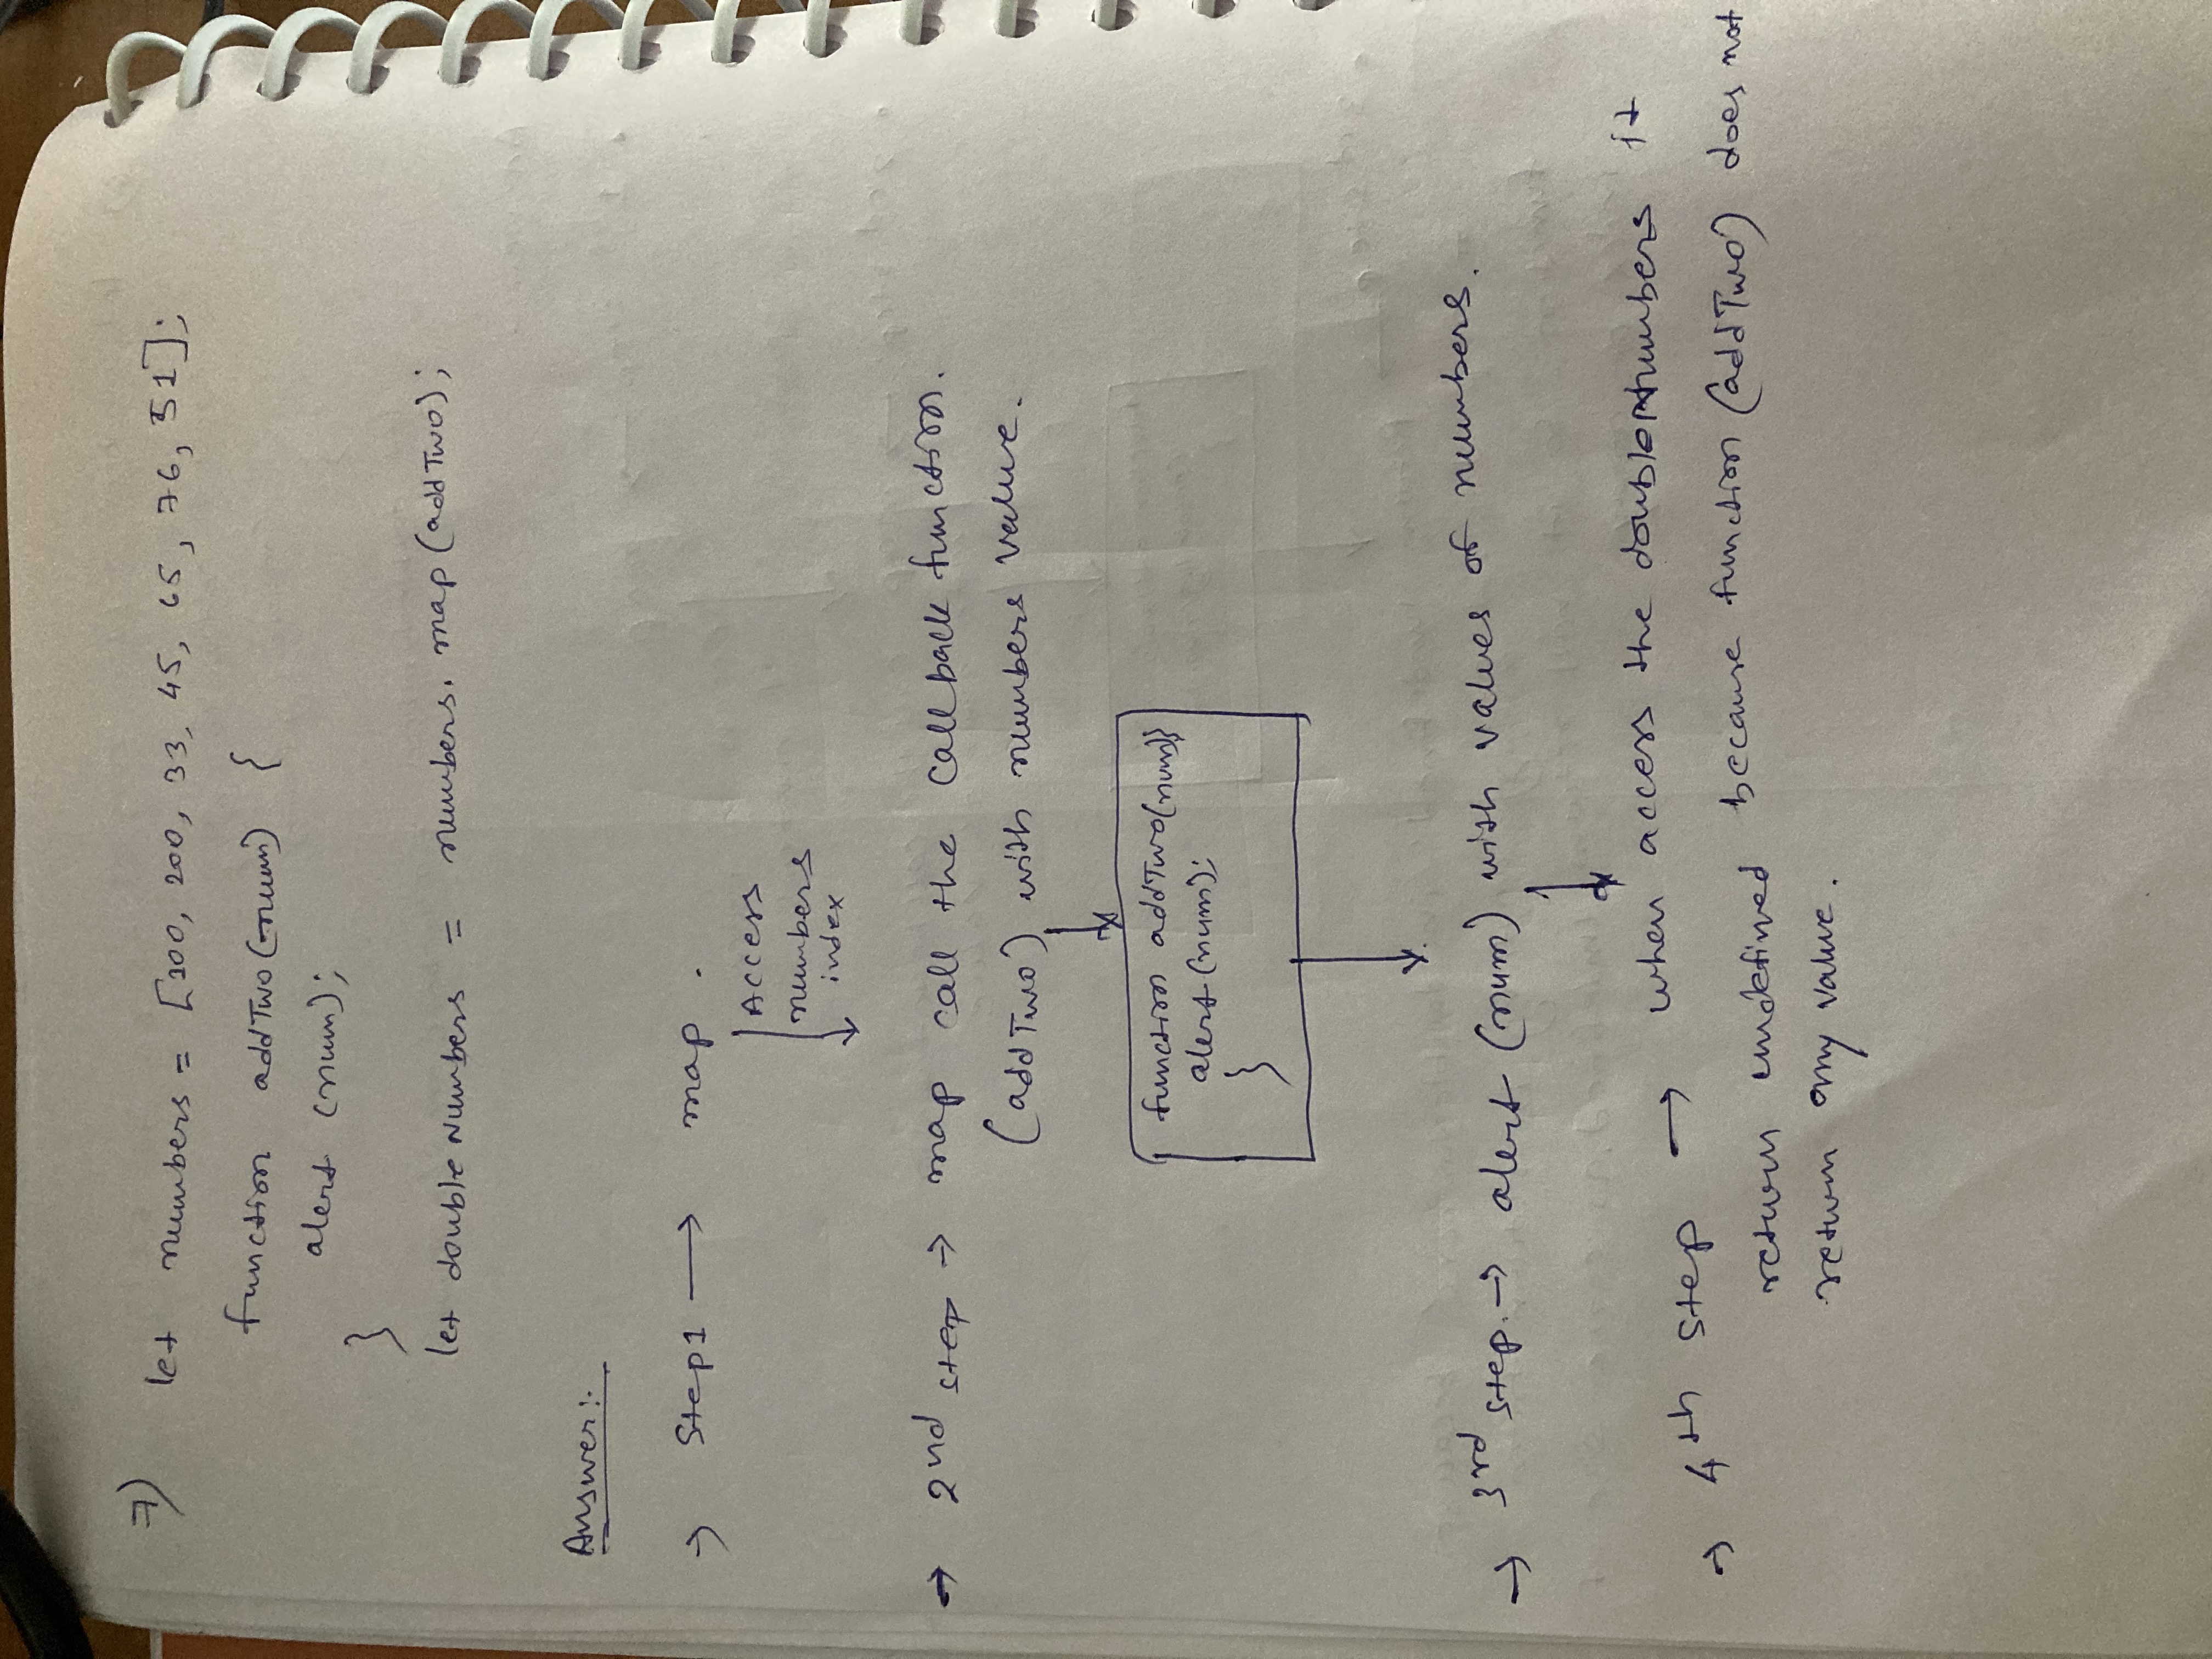 7) let numbers = [100, 200, 33, 45, 65, 76, 51];
function addTwo(num) {
alert (num);
}
let doubleNumbers = numbers. map (addTwo);
Answer:-
→ Step1 → map .
Access
numbers
index
→ 2nd step → map call the callback function.
(addTwo) with numbers value.
function addTwo(num){
alert(num);
}
→ 3rd step. → alert (num) with values of numbers.
→ 4th step → when access the doubleNumbers it
return undefined because function (addTwo) does not
return any value.